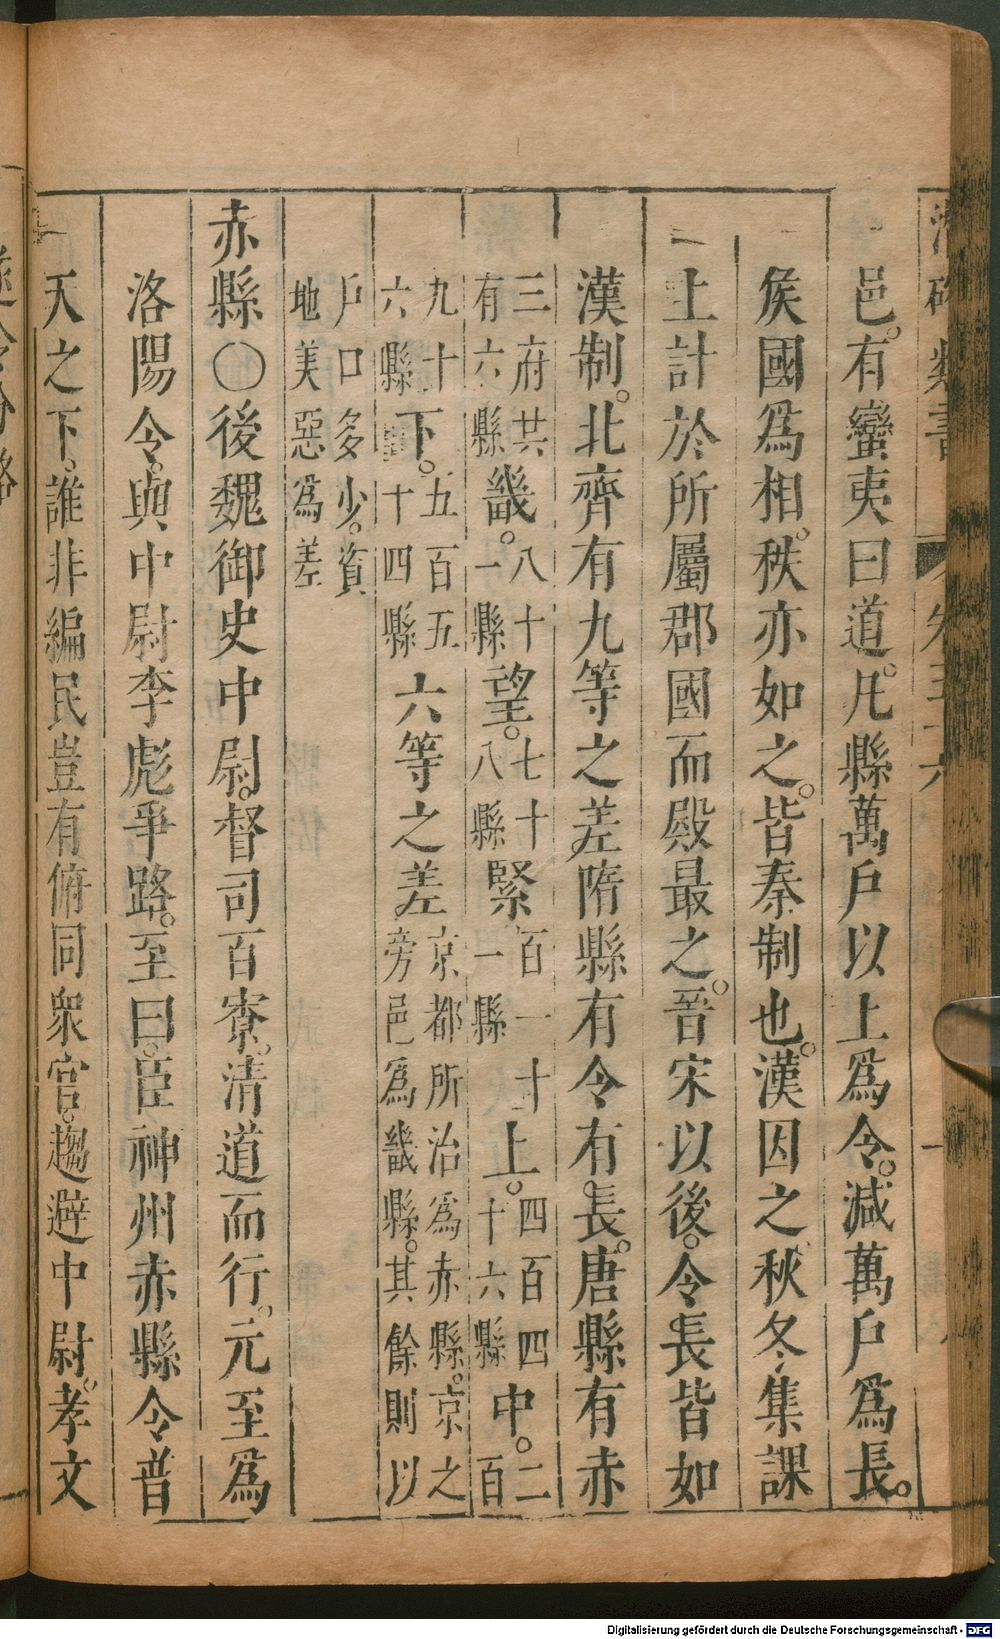 邑。有蠻夷曰道。凡縣萬戶以上爲令。減萬戶爲長。
侯國爲相。秩亦如之。皆秦制也。漢因之秋冬集課
上計於所屬郡國而殿最之。晉宋以後。令長皆如
漢制。北齊有九等之差隋縣有令有長。唐縣有赤
三府共有六縣畿。八十一縣望。七十八縣緊百一十一縣上。四百四十六縣中。二百
九十六縣下。五百五十四縣六等之差京都所治爲赤縣。京之旁邑爲畿縣。其餘則以
戶口多少。資地美惡爲差
赤縣〇後魏御史中尉。督司百寮。清道而行。元至爲
洛陽令。與中尉李彪爭路。至曰。臣神州赤縣令普
天之下。誰非編民豈有俯同衆官。趨避中尉。孝文
Digitalisierung gefördert durch die Deutsche Forschungsgemeinschaft - DFG